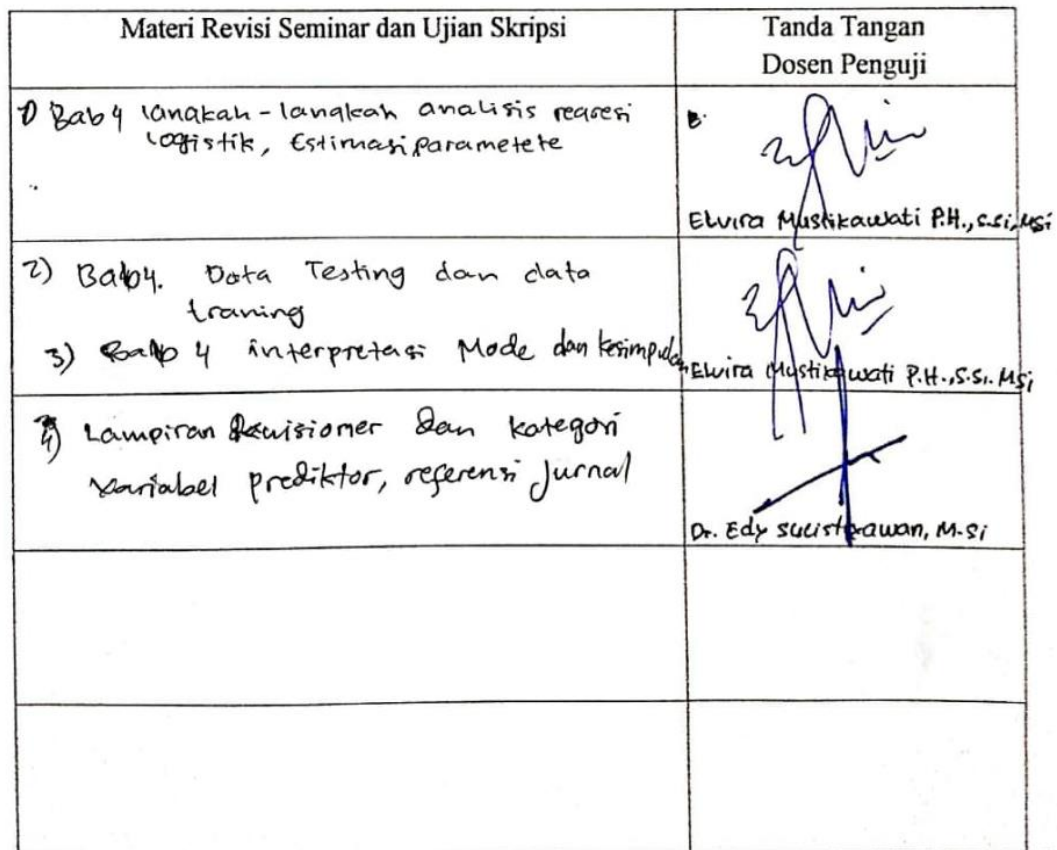 Materi Revisi Seminar dan Ujian Skripsi
Tanda Tangan
Dosen Penguji
1) Bab 4 langkah-langkah analisis regresi
logistik, Estimasi Parametete
Elvira Mustikawati P.H., S.Si, MSi
2) Bab 4. Data Testing dan data
traning
3) Bab 4 interpretasi Mode dan kesimpulan
Elvira Mustikawati P.H., S.Si. MSi
4) Lampiran kuisioner dan kategori
variabel prediktor, referensi Jurnal
Dr. Edy M.Si